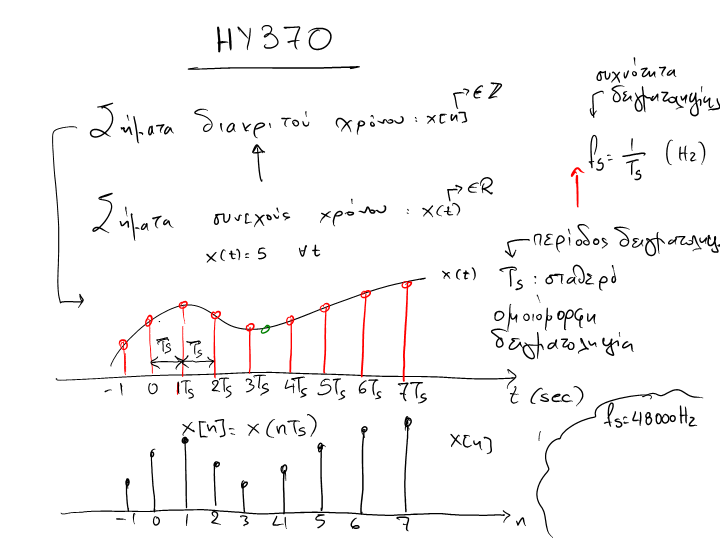 ΗΥ370
Σήματα διακριτού χρόνου : x[n] → ∈ℤ
Σήματα συνεχούς χρόνου : x(t) → ∈R
x(t) = 5 ∀t
συχνότητα
δειγματοληψίας
fs = 1/Ts (Hz)
περίοδος δειγματοληψίας
Ts : σταθερό
ομοιόμορφη
δειγματοληψία
x(t)
Ts Ts
-1 0 1Ts 2Ts 3Ts 4Ts 5Ts 6Ts 7Ts t (sec)
x[n] = x(nTs)
x[n]
fs=48000Hz
-1 0 1 2 3 4 5 6 7 n